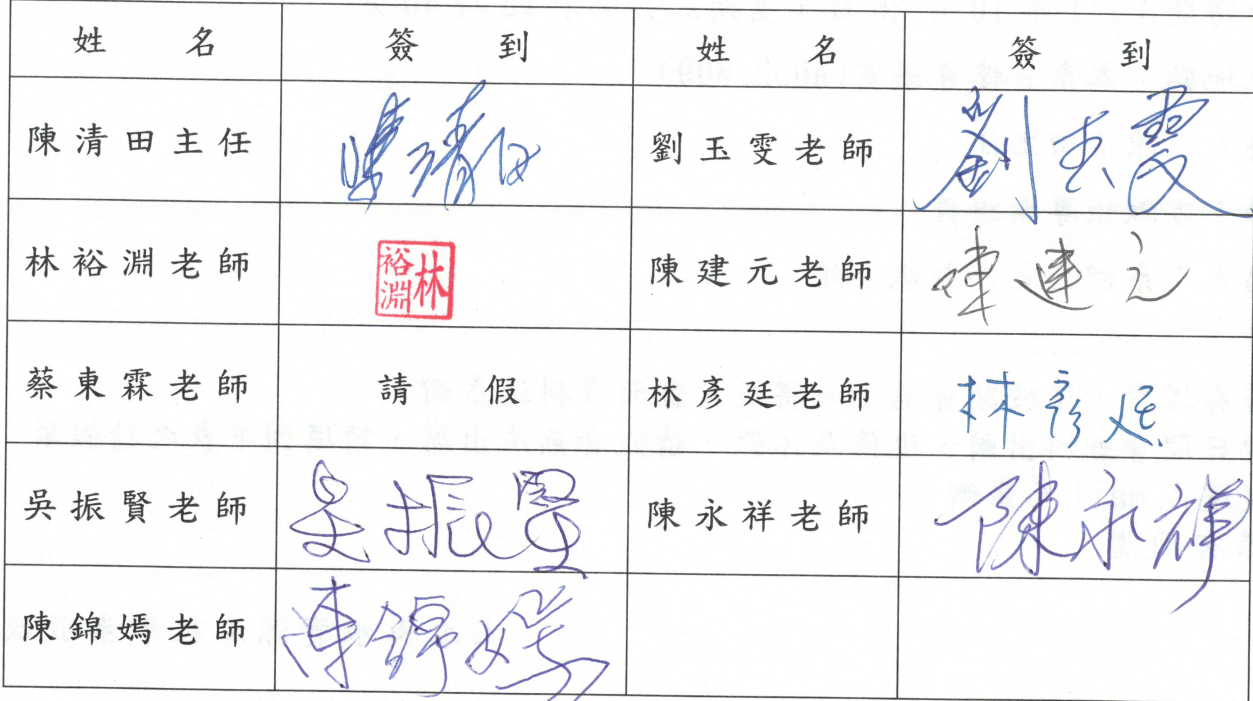 姓 名 簽 到 姓 名 簽 到
陳清田主任 陳清田 劉玉雯老師 劉玉雯
林裕淵老師 林裕淵 陳建元老師 陳建元
蔡東霖老師 請 假 林彥廷老師 林彥廷
吳振賢老師 吳振賢 陳永祥老師 陳永祥
陳錦嫣老師 陳錦嫣